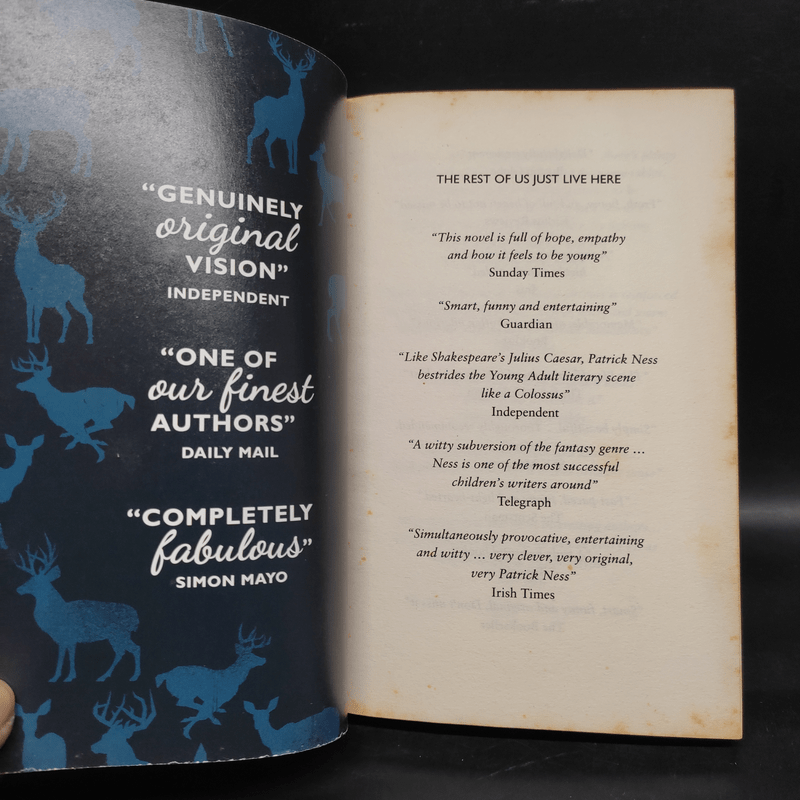 “GENUINELY
original
VISION”
INDEPENDENT
“ONE OF
our finest
AUTHORS”
DAILY MAIL
“COMPLETELY
fabulous”
SIMON MAYO
THE REST OF US JUST LIVE HERE
“This novel is full of hope, empathy
and how it feels to be young”
Sunday Times
“Smart, funny and entertaining”
Guardian
“Like Shakespeare’s Julius Caesar, Patrick Ness
bestrides the Young Adult literary scene
like a Colossus”
Independent
“A witty subversion of the fantasy genre …
Ness is one of the most successful
children’s writers around”
Telegraph
“Simultaneously provocative, entertaining
and witty … very clever, very original,
very Patrick Ness”
Irish Times